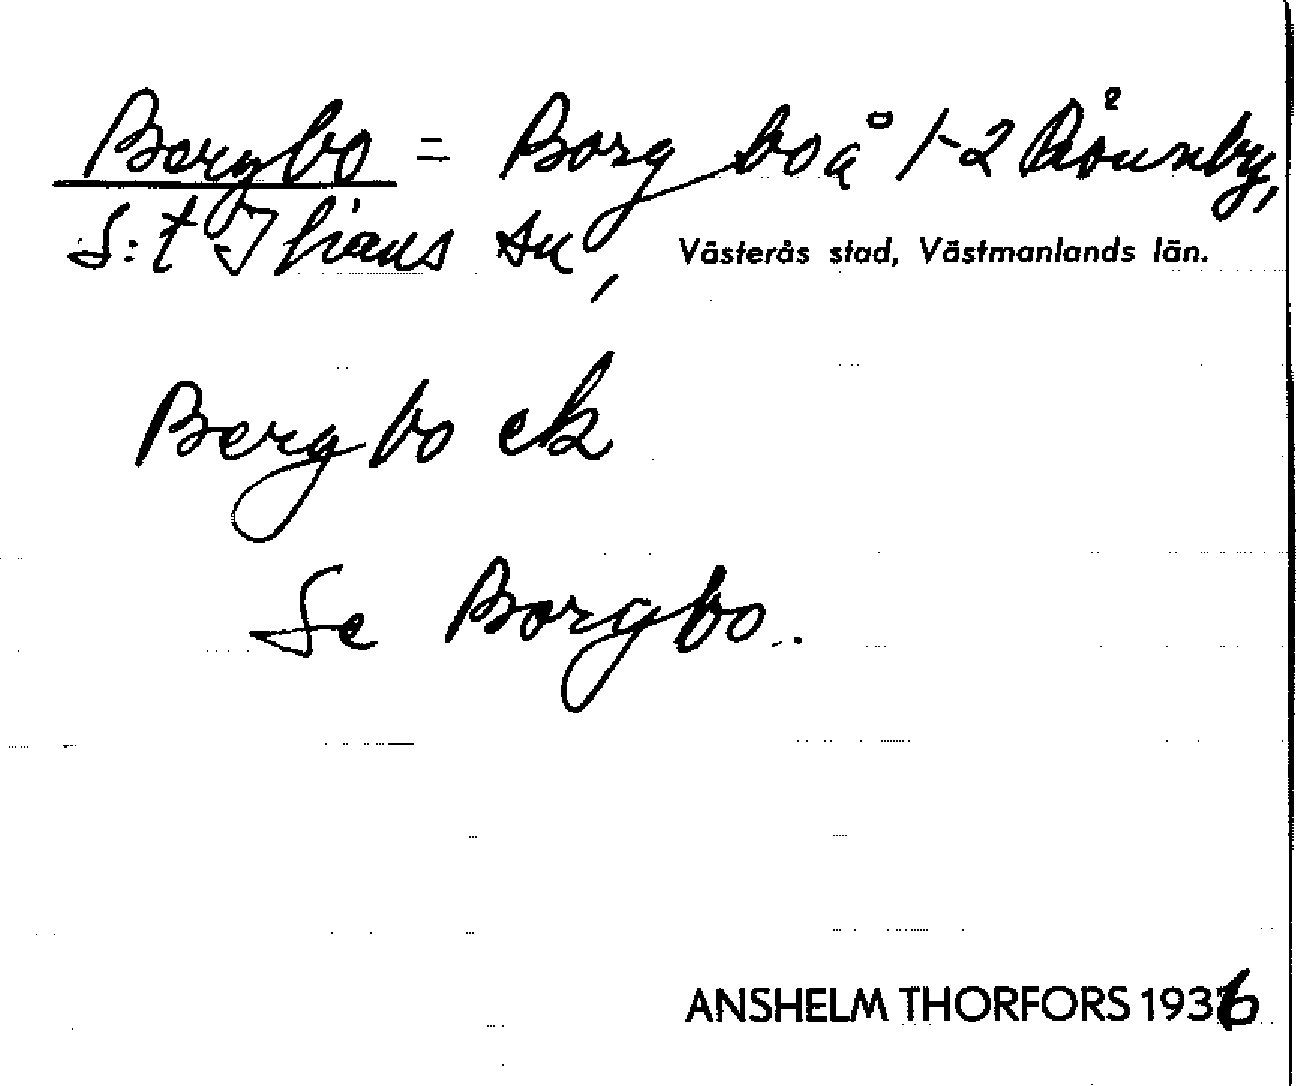 Bergbo = Borgbo å 1-2 Rönnby,
S:t Ilians sn, Västerås stad, Västmanlands län.
Bergbo ek
Se Borgbo.
ANSHELM THORFORS 1936